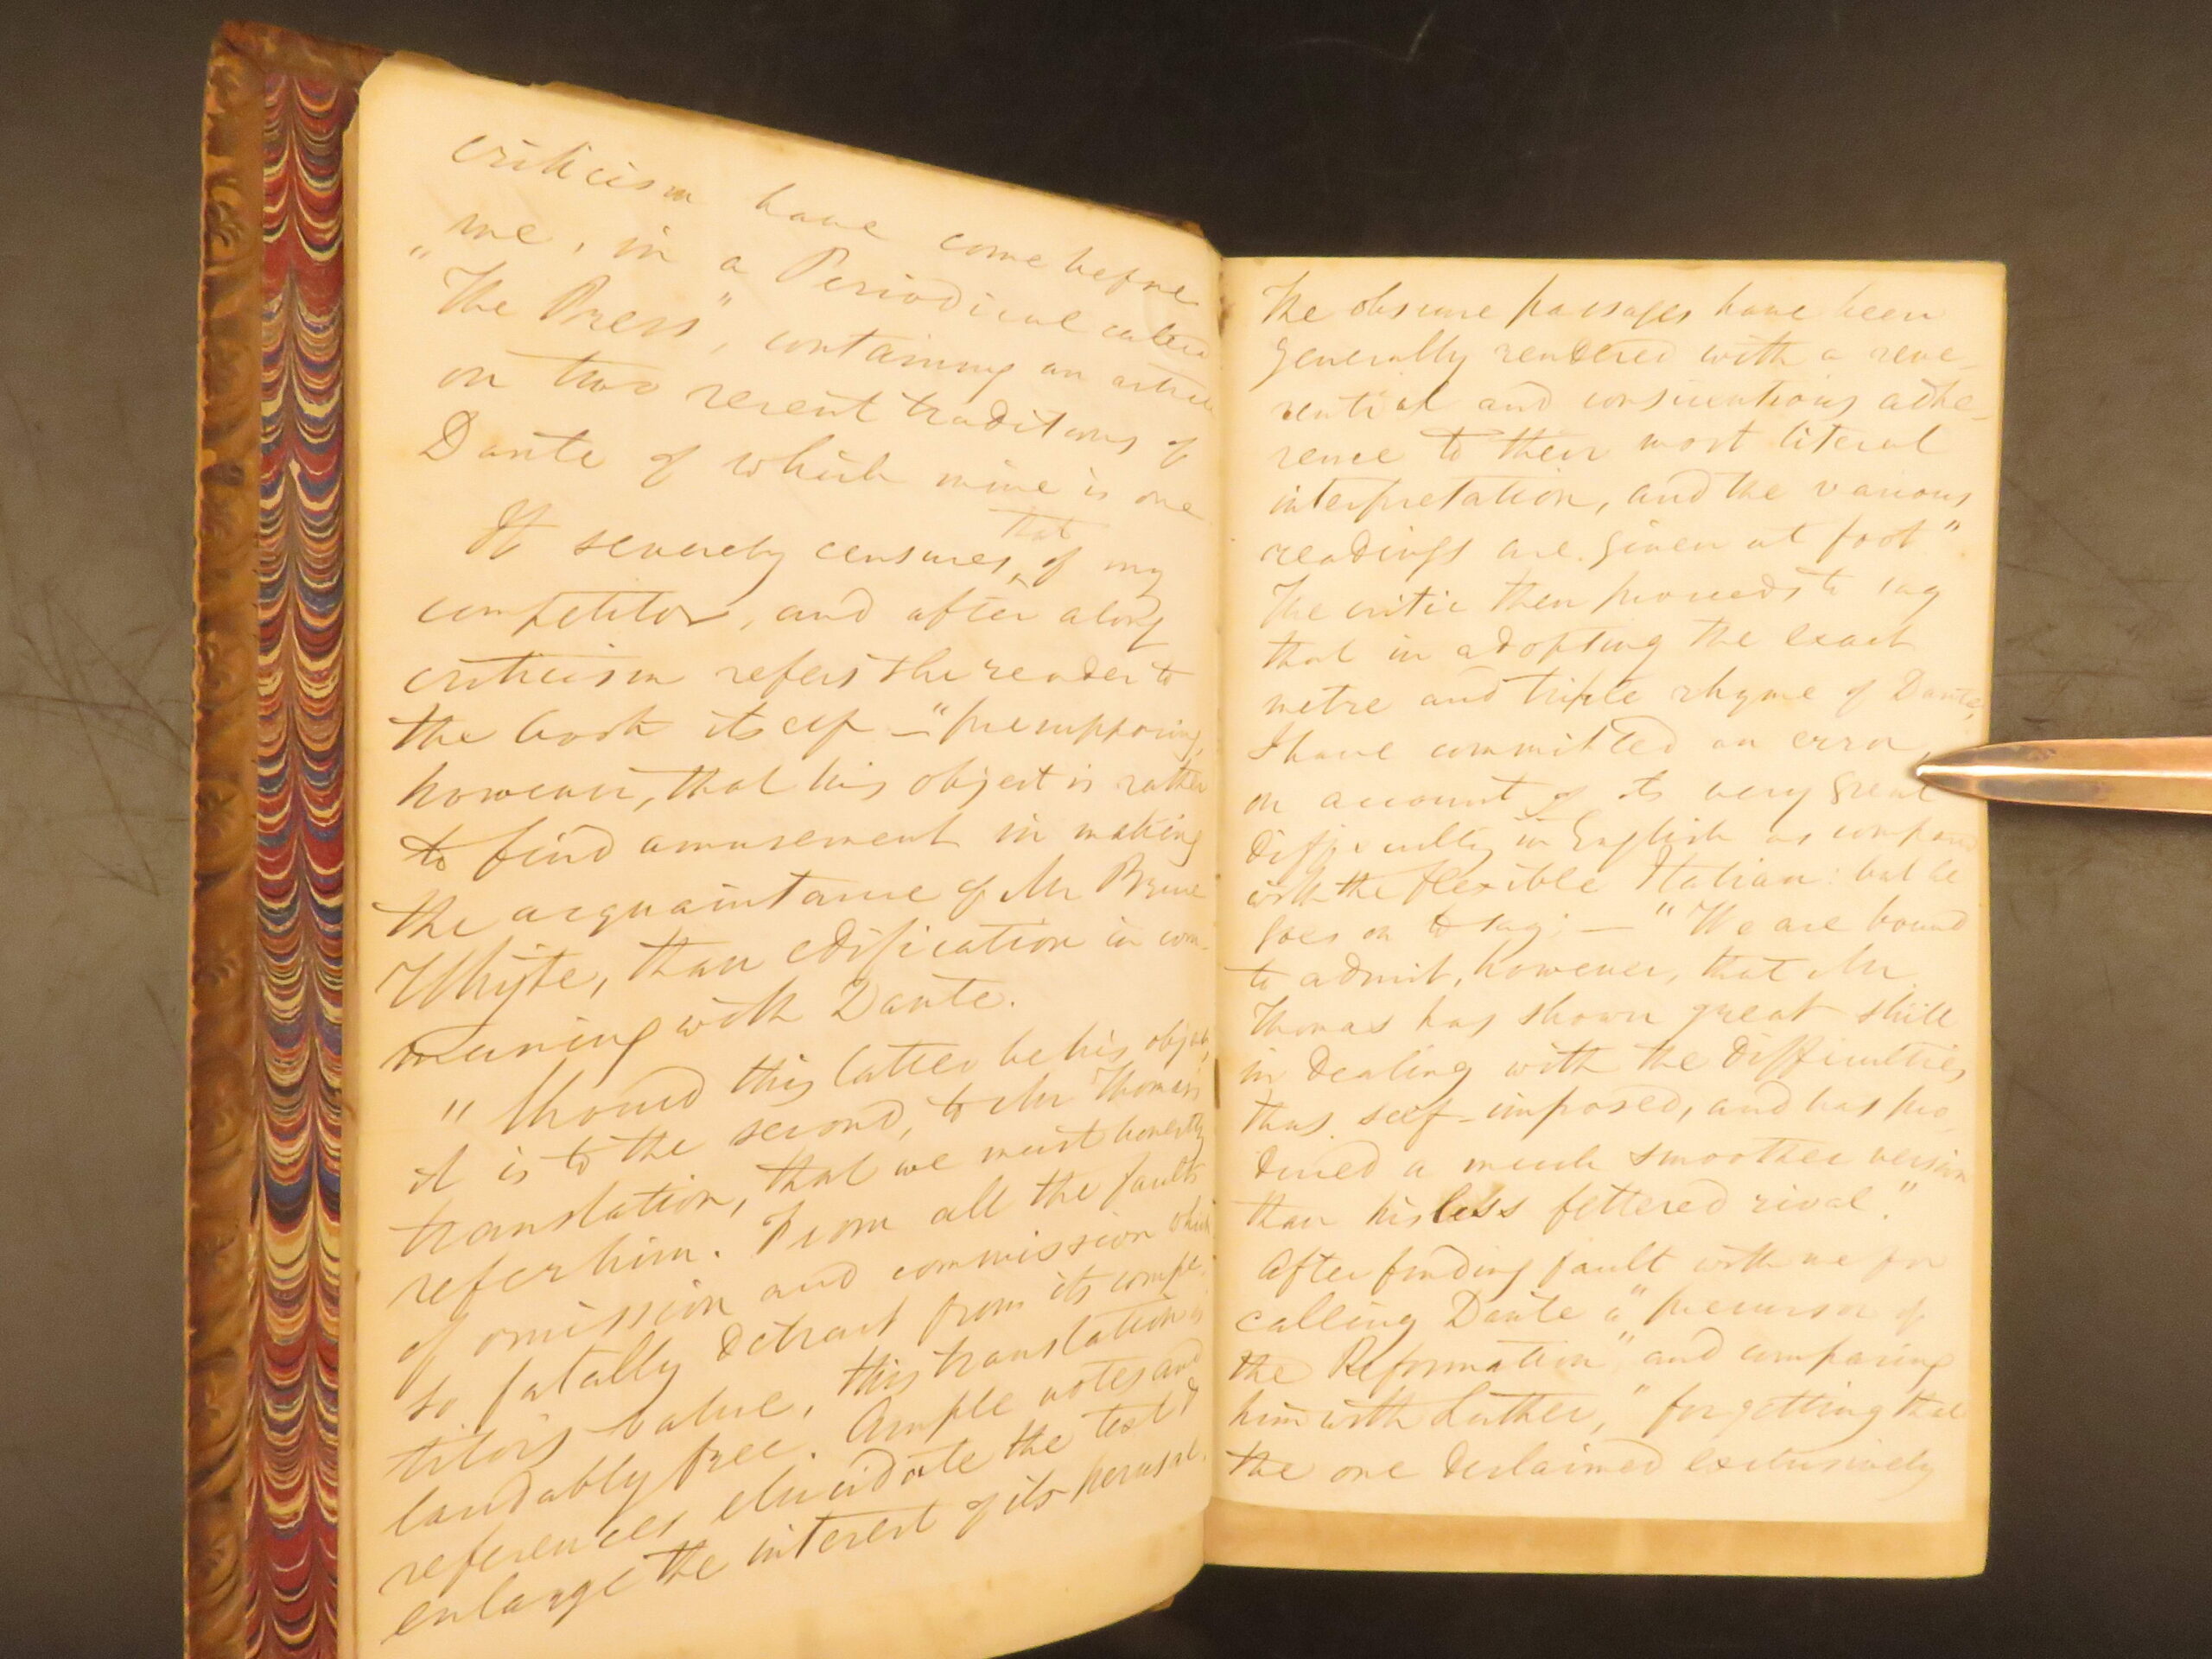 criticism have come before
me, in a Periodical called
"The Press", containing an article
on two recent traditions of
Dante of which mine is one
It severely censures that of my
competitor, and after a long
criticism refers the reader to
the book itself — "presupposing,
however, that his object is rather
to find amusement in making
the acquaintance of Mr Bruce
Whyte, than edification in com-
muning with Dante.
"Should this latter be his object,
it is to the second, to Mr Thomas's
translation, that we must honestly
refer him. From all the faults
of omission and commission which
so fatally detract from its compe-
titor's value, this translation is
laudably free. Ample notes and
references elucidate the text &
enlarge the interest of its perusal.
The obscure passages have been
generally rendered with a reve-
rential and conscientious adhe-
rence to their most literal
interpretation, and the various
readings are given at foot"
The critic then proceeds to say
that in adopting the exact
metre and triple rhyme of Dante,
I have committed an error,
on account of its very great
difficulty in English as compared
with the flexible Italian: but he
goes on to say: — "We are bound
to admit, however, that Mr
Thomas has shown great skill
in dealing with the difficulties
thus self-imposed, and has pro-
duced a much smoother version
than his less fettered rival."
After finding fault with me for
calling Dante a "precursor of
the Reformation" and comparing
him with Luther, "forgetting that
the one declaimed exclusively